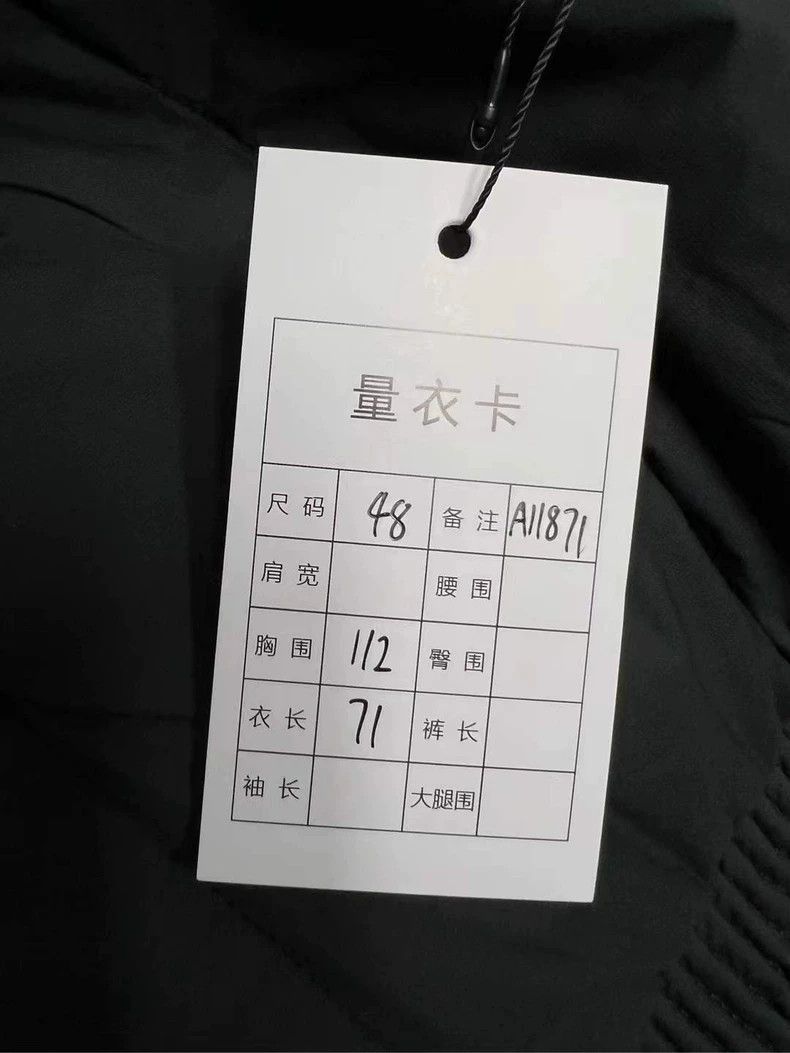 量衣卡
尺码 48 备注 A11871
肩宽 腰围
胸围 112 臀围
衣长 71 裤长
袖长 大腿围